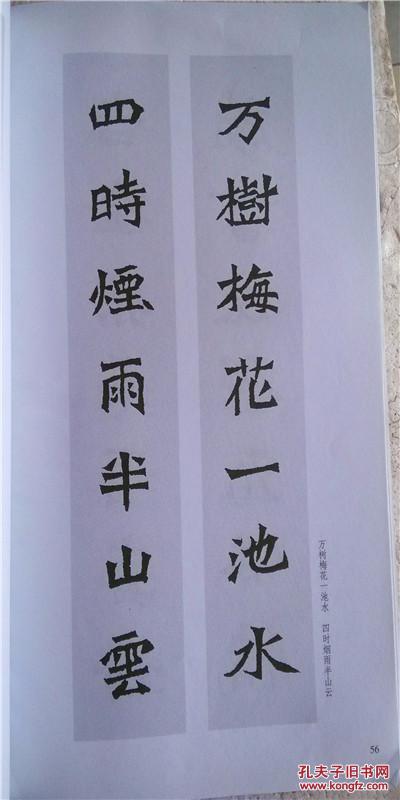 万樹梅花一池水
四時煙雨半山雲
万树梅花一池水 四时烟雨半山云
56
孔夫子旧书网
www.kongfz.com